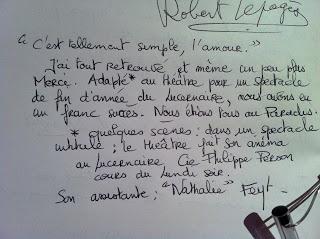 Robert Lepages
"C'est tellement simple, l'amour."
J'ai tout retrouvé et même un peu plus
Merci. Adapté* au théâtre pour un spectacle
de fin d'année du Lucernaire, nous avons eu
un franc succès. Nous étions tous au Paradis.
* quelques scènes : dans un spectacle
intitulé ; le théâtre fait son cinéma
au Lucernaire Cie Philippe Person
cours du lundi soir.
Son assistante ; "Nathalie"